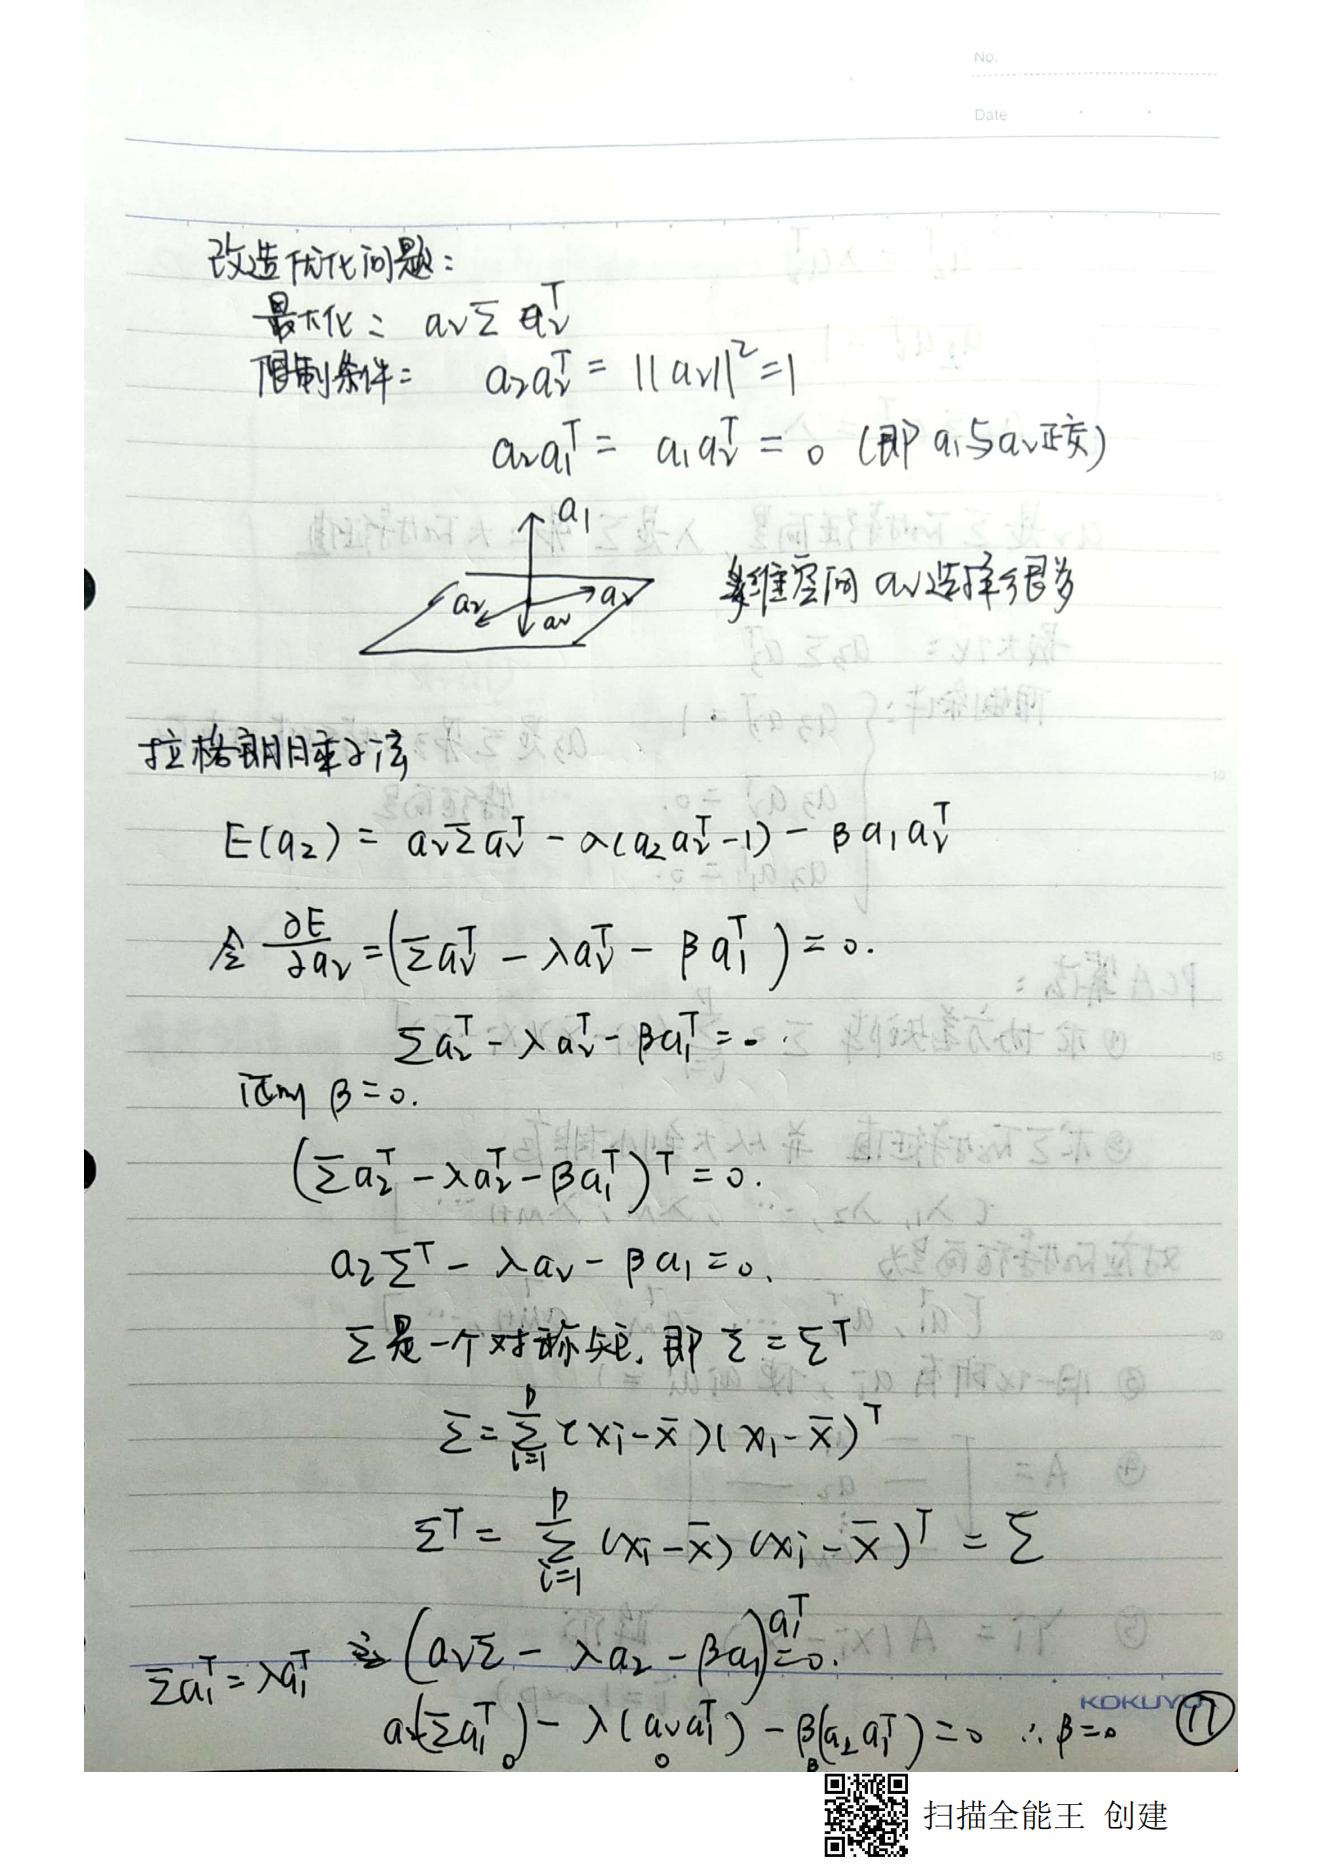 No.
Date
改造优化问题：
最大化： a₂Σ a₂ᵀ
限制条件： a₂a₂ᵀ = ||a₂||² = 1
a₂a₁ᵀ = a₁a₂ᵀ = 0 (即 a₁与a₂正交)
a₁
a₂ a₂ a₂
多维空间 a₂选择很多
拉格朗日乘子法
E(a₂) = a₂Σa₂ᵀ - λ(a₂a₂ᵀ-1) - βa₁a₂ᵀ
令 ∂E/∂a₂ = (Σa₂ᵀ - λa₂ᵀ - βa₁ᵀ) = 0.
Σa₂ᵀ - λa₂ᵀ - βa₁ᵀ = 0.
证明 β=0.
(Σa₂ᵀ - λa₂ᵀ - βa₁ᵀ)ᵀ = 0.
a₂Σᵀ - λa₂ - βa₁ = 0.
Σ是一个对称矩, 即 Σ = Σᵀ
Σ = Σᵢ₌₁ᴾ (xᵢ-x̄)(xᵢ-x̄)ᵀ
Σᵀ = Σᵢ₌₁ᴾ (xᵢ-x̄)(xᵢ-x̄)ᵀ = Σ
Σa₁ᵀ = λa₁ᵀ (a₂Σ - λa₂ - βa₁)a₁ᵀ = 0.
a₂(Σa₁ᵀ) - λ(a₂a₁ᵀ) - β(a₂a₁ᵀ) = 0 ∴ β=0
0 0 β
KOKUYO
17
扫描全能王 创建